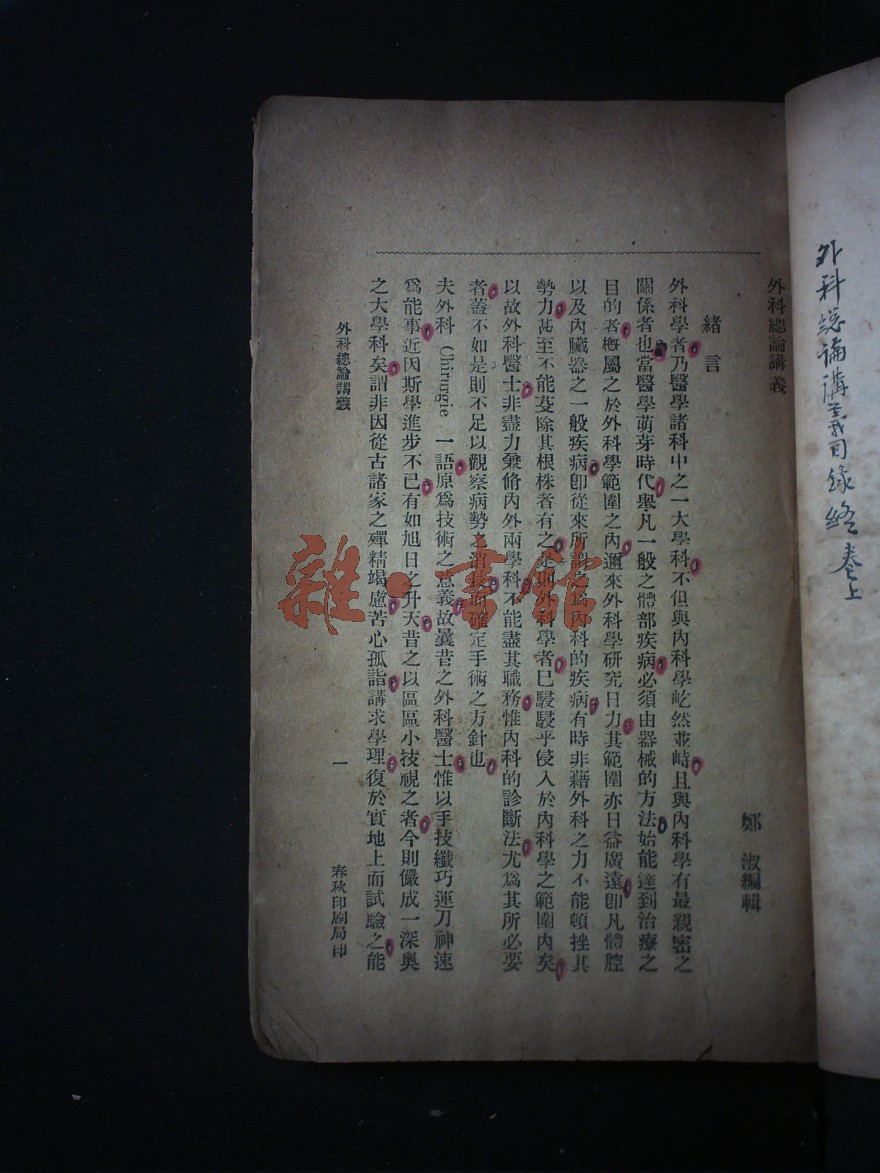 外科總論講義目錄終 卷上
外科總論講義
鄭淑編輯
緒言
外科學者乃醫學諸科中之一大學科不但與內科學屹然並峙且與內科學有最親密之
關係者也當醫學萌芽時代舉凡一般之體部疾病必須由器械的方法始能達到治療之
目的者槪屬之於外科學範圍之內邇來外科學研究日力其範圍亦日益廣遠卽凡體腔
以及內臟器之一般疾病卽從來所謂之爲內科的疾病有時非藉外科之力不能頓挫其
勢力甚至不能芟除其根株者有之是則外科學者已駸駸乎侵入於內科學之範圍內矣
以故外科醫士非盡力兼脩內外兩學科不能盡其職務惟內科的診斷法尤爲其所必要
者蓋不如是則不足以觀察病勢之消長而確定手術之方針也
夫外科 Chirurgie 一語原爲技術之意義故曩昔之外科醫士惟以手技纖巧運刀神速
爲能事近因斯學進步不已有如旭日之升天昔之以區區小技視之者今則儼成一深奧
之大學科矣謂非因從古諸家之殫精竭慮苦心孤詣講求學理復於實地上而試驗之能
外科總論講義
一
春秋印刷局印
雜·書館